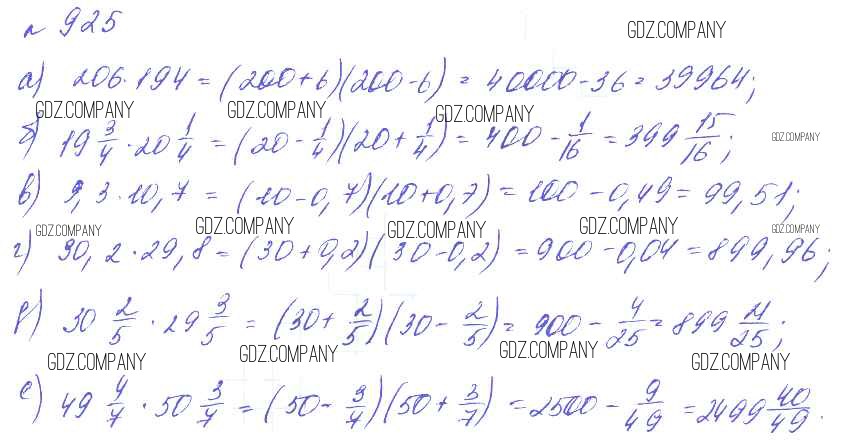 № 925
GDZ.COMPANY
а) 206·194 = (200+6)(200-6) = 40000-36 = 39964;
GDZ.COMPANY GDZ.COMPANY GDZ.COMPANY
б) 19 3/4 · 20 1/4 = (20 - 1/4)(20 + 1/4) = 400 - 1/16 = 399 15/16;
GDZ.COMPANY
в) 9,3·10,7 = (10-0,7)(10+0,7) = 100-0,49 = 99,51;
GDZ.COMPANY GDZ.COMPANY GDZ.COMPANY GDZ.COMPANY GDZ.COMPANY
г) 30,2·29,8 = (30+0,2)(30-0,2) = 900-0,04 = 899,96;
д) 30 2/5 · 29 3/5 = (30 + 2/5)(30 - 2/5) = 900 - 4/25 = 899 21/25;
GDZ.COMPANY GDZ.COMPANY GDZ.COMPANY GDZ.COMPANY
е) 49 4/7 · 50 3/7 = (50 - 3/7)(50 + 3/7) = 2500 - 9/49 = 2499 40/49.